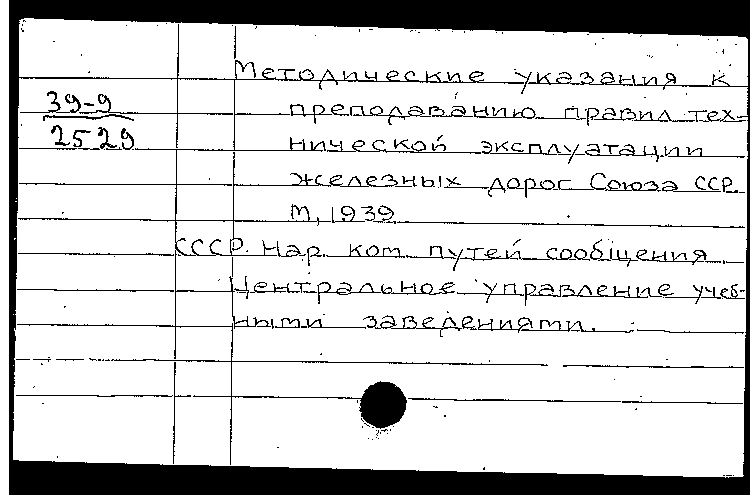 Методические указания к
39-9
преподаванию правил тех-
2529
нической эксплуатации
железных дорог Союза ССР.
М, 1939
СССР. Нар. ком. путей сообщения.
Центральное управление учеб-
ными заведениями.